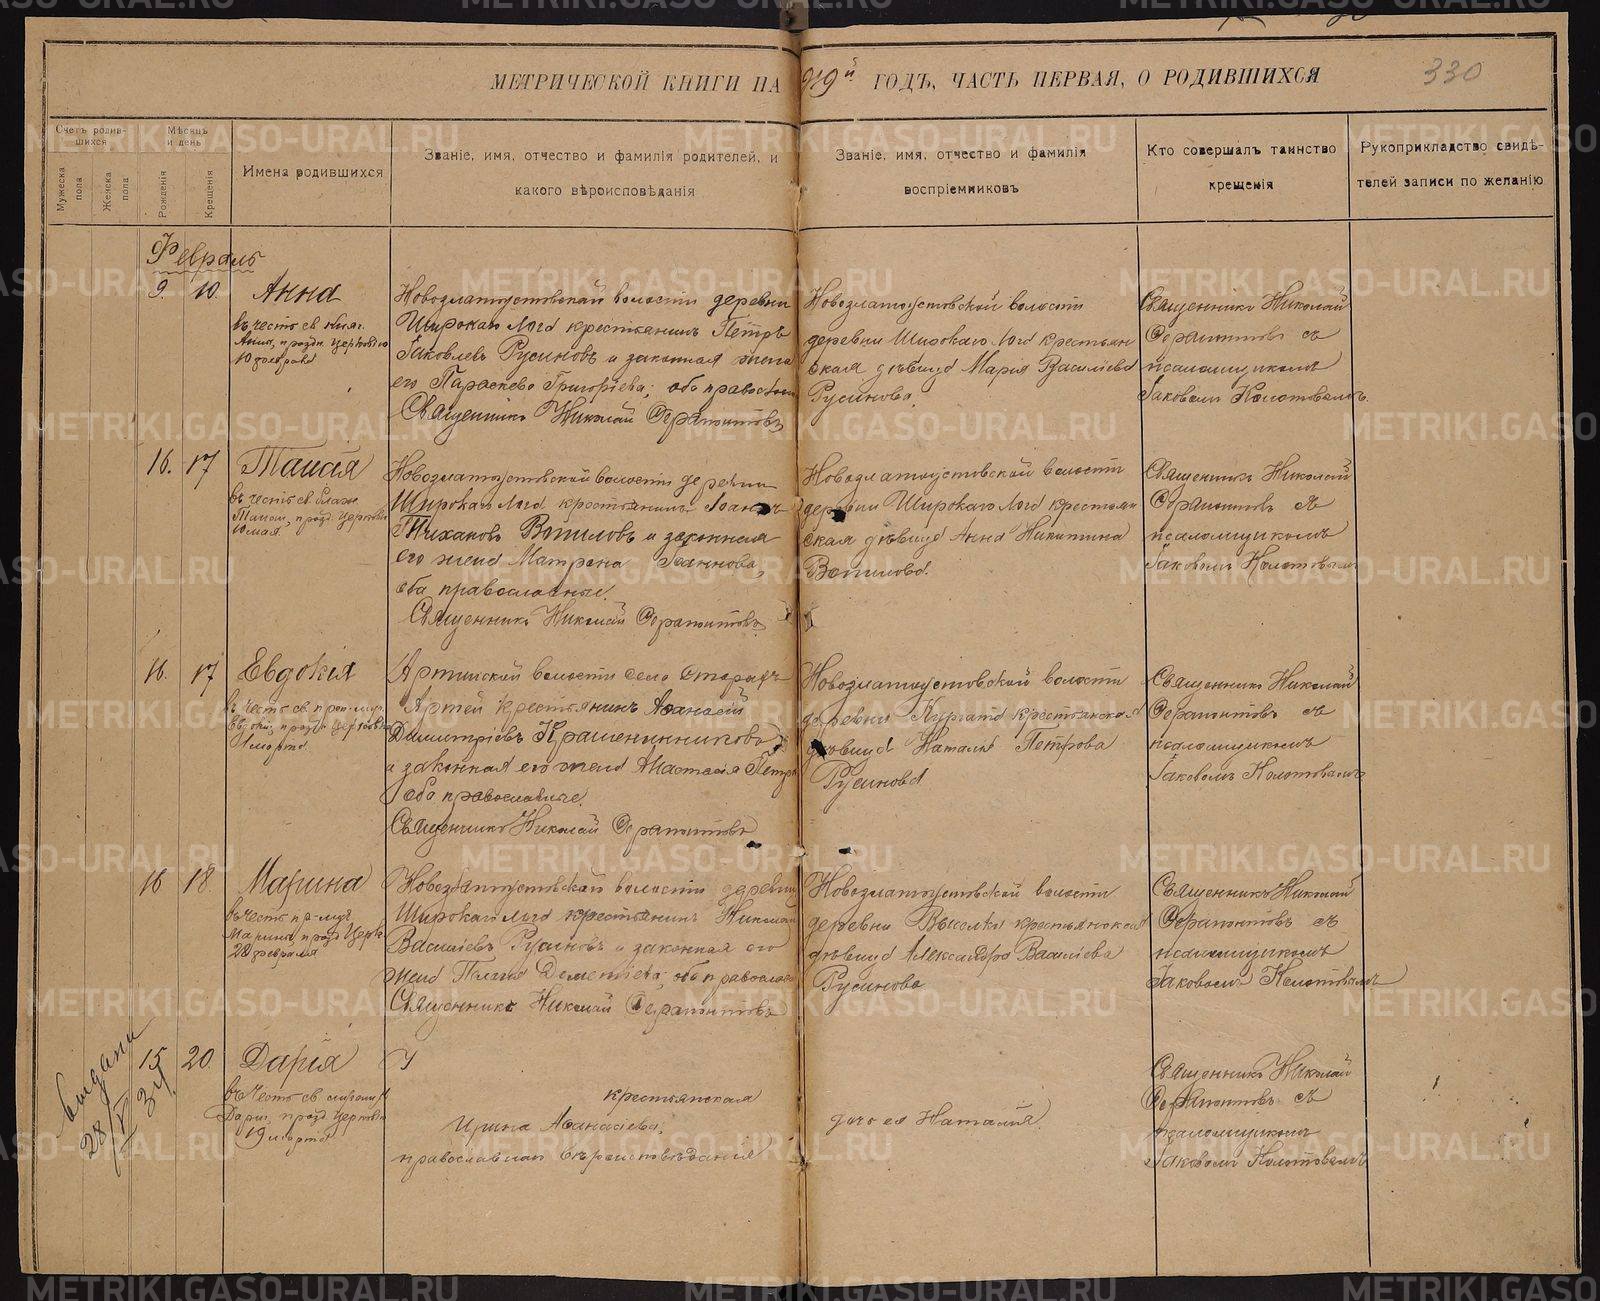 330
МЕТРИЧЕСКОЙ КНИГИ НА 919й ГОДЪ, ЧАСТЬ ПЕРВАЯ, О РОДИВШИХСЯ
Счетъ родившихся
Мужеска пола
Женска пола
Мѣсяцъ и день
Рожденія
Крещенія
Имена родившихся
Званіе, имя, отчество и фамилія родителей, и
какого вѣроисповѣданія
Званіе, имя, отчество и фамилія
воспріемниковъ
Кто совершалъ таинство
крещенія
Рукоприкладство свидѣ-
телей записи по желанію
Февраль
9. 10. Анна
въ честь св.
Анны, празд. церковію
10 февраля
Новозлатоустовской волости деревни
Широкаго Лога крестьянинъ Петръ
Іаковлевъ Русиновъ и законная жена
его Параскева Григоріева; оба православ
Священникъ Николай
Новозлатоустовской волости
деревни Широкаго Лога крестьян
ская дѣвица Марія Василіева
Русинова.
Священникъ Николай
съ
псаломщикомъ
Іаковомъ Колотовымъ.
16. 17 Таисія
въ честь св. блаж.
Таисіи, празд. церковію
10 мая.
Новозлатоустовской волости деревни
Широкаго Лога крестьянинъ Іоаннъ
Тихановъ Вотиловъ и законная
его жена Матрона Іоаннова,
оба православные.
Священникъ Николай
Новозлатоустовской волости
деревни Широкаго Лога крестьян
ская дѣвица Анна Никитина
Вотилова.
Священникъ Николай
съ
псаломщикомъ
Іаковомъ Колотовымъ
16. 17 Евдокія
въ честь св. преп.-муч.
Евдокіи, празд. церковію
1 марта.
Артинской волости села Старыхъ
Артей крестьянинъ Аѳанасій
Димитріевъ Крашенинниковъ
и законная его жена Анастасія Петр
оба православные.
Священникъ Николай
Новозлатоустовской волости
деревни крестьянская
дѣвица Наталія Петрова
Русинова
Священникъ Николай
съ
псаломщикомъ
Іаковомъ Колотовымъ
16 18. Марина
въ честь пр-мцъ
Марины, празд. церк.
28 февраля
Новозлатоустовской волости деревни
Широкаго Лога крестьянинъ Николай
Василіевъ Русиновъ и законная его
жена Пелагія Дементіева; оба православн
Священникъ Николай
Новозлатоустовской волости
деревни Выселки крестьянская
дѣвица Александра Василіева
Русинова
Священникъ Николай
съ
псаломщикомъ
Іаковомъ Колотовымъ
выдана
28/VI 34
15 20. Дарія
въ честь св. мучениц.
Даріи, празд. церковію
19 марта
крестьянская
Ирина Аѳанасіева,
православнаго вѣроисповѣданія
дочь ея Наталія.
Священникъ Николай
съ
псаломщикомъ
Іаковомъ Колотовымъ
METRIKI.GASO-URAL.RU